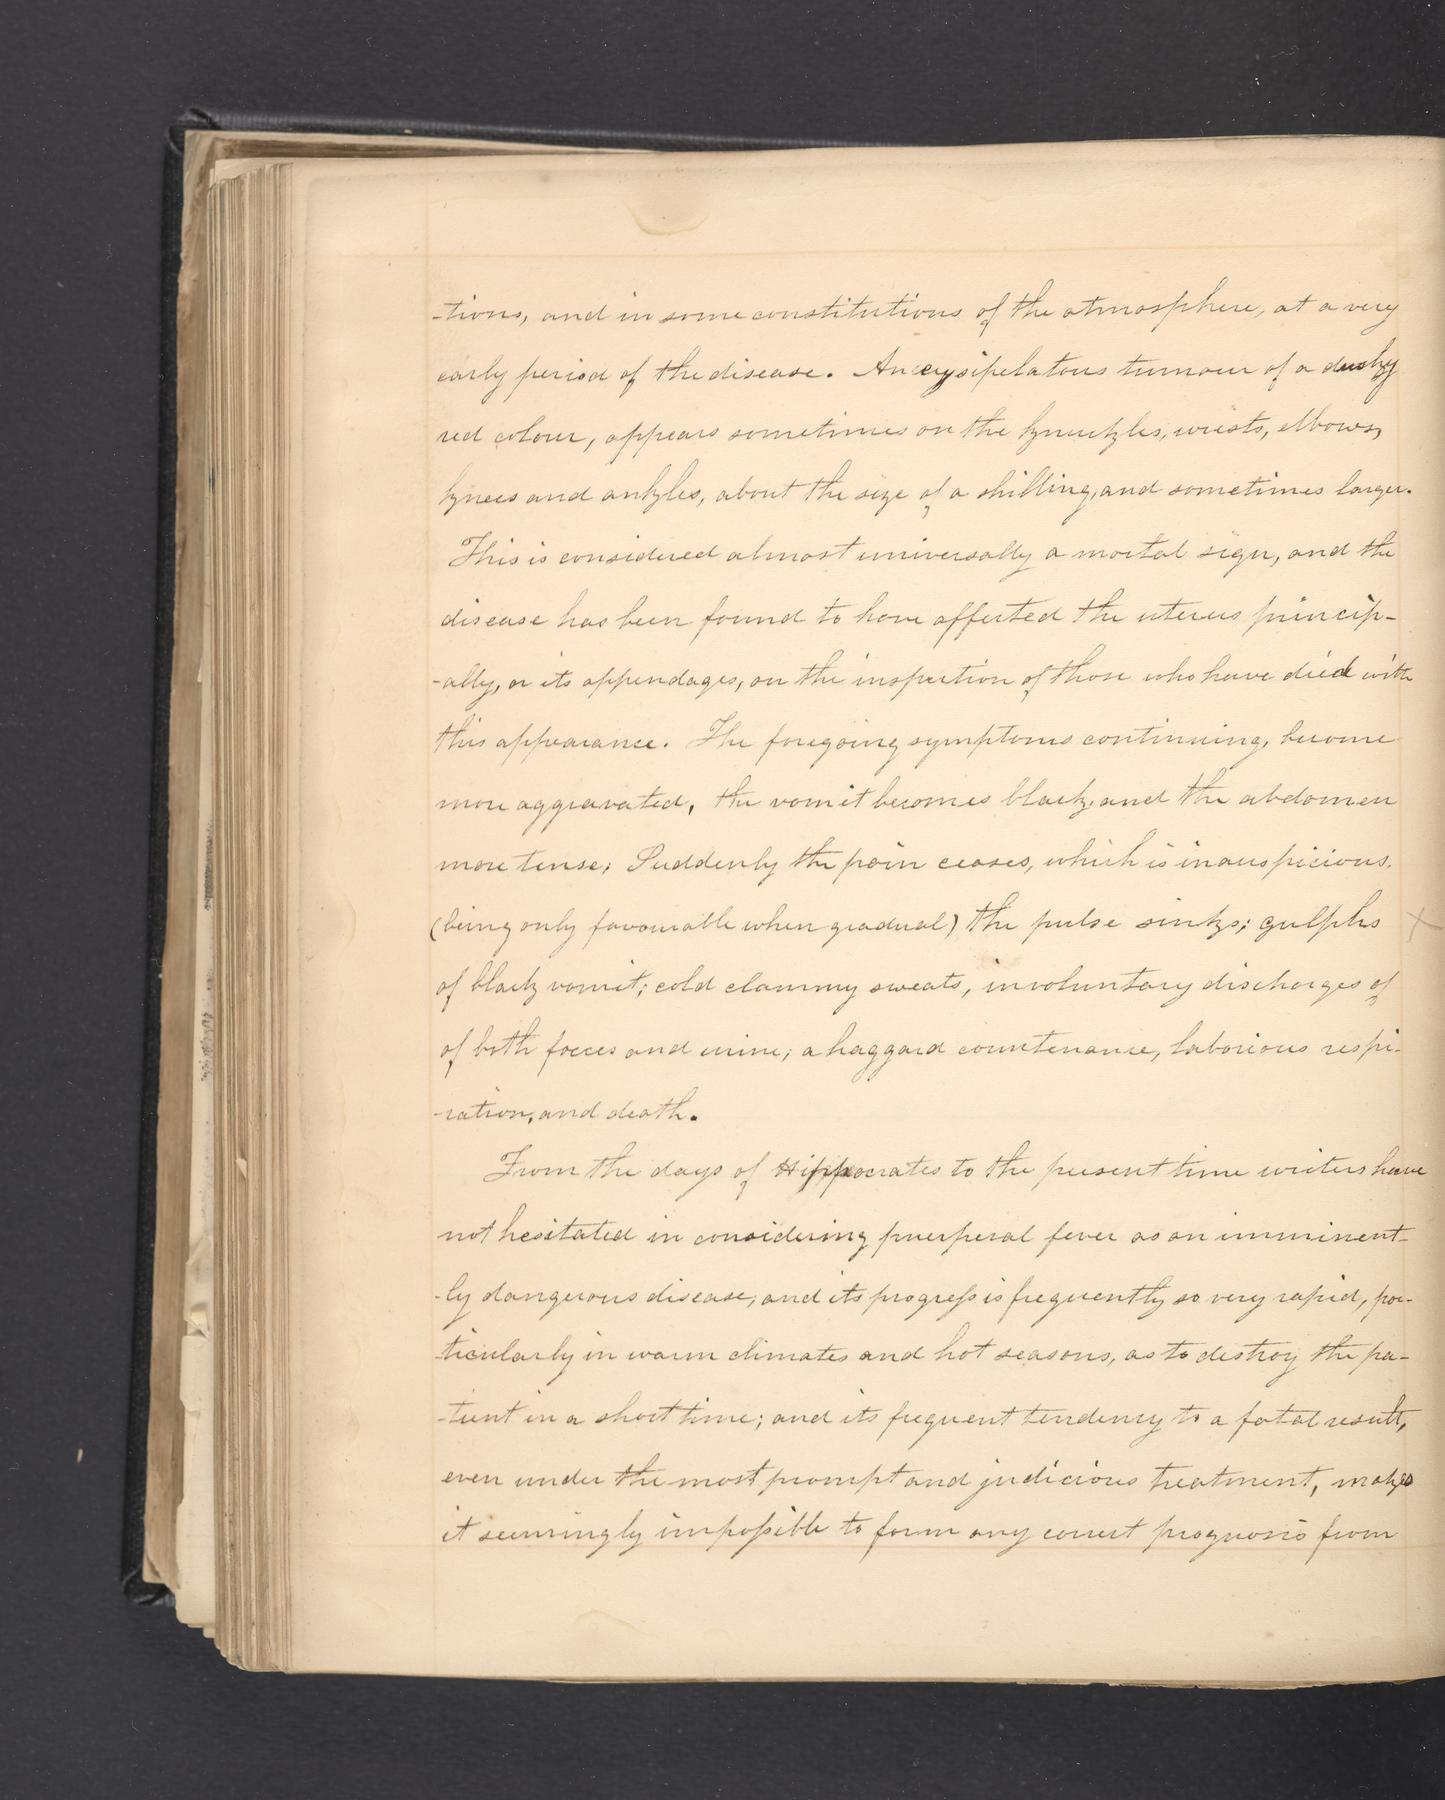 -tions, and in some constitutions of the atmosphere, at a very
early period of the disease. An erysipelatous tumour of a dusky
red colour, appears sometimes on the knuckles, wrists, elbows,
knees and ankles, about the size of a shilling, and sometimes larger.
This is considered almost universally a mortal sign, and the
disease has been found to have affected the uterus princip-
-ally, or its appendages, on the inspection of those who have died with
this appearance. The foregoing symptoms continuing, become
more aggravated, the vomit becomes black, and the abdomen
more tense; Suddenly the pain ceases, which is inauspicious,
(being only favourable when gradual) the pulse sinks; gulphs
of black vomit; cold clammy sweats, involuntary discharges of
of both fœces and urine; a haggard countenance, laborious respi-
-ration, and death.
From the days of Hippocrates to the present time writers have
not hesitated in considering puerperal fever as an imminent-
-ly dangerous disease; and its progress is frequently so very rapid, par-
-ticularly in warm climates and hot seasons, as to destroy the pa-
-tient in a short time; and its frequent tendency to a fatal result,
even under the most prompt and judicious treatment, makes
it seemingly impossible to form any correct prognosis from